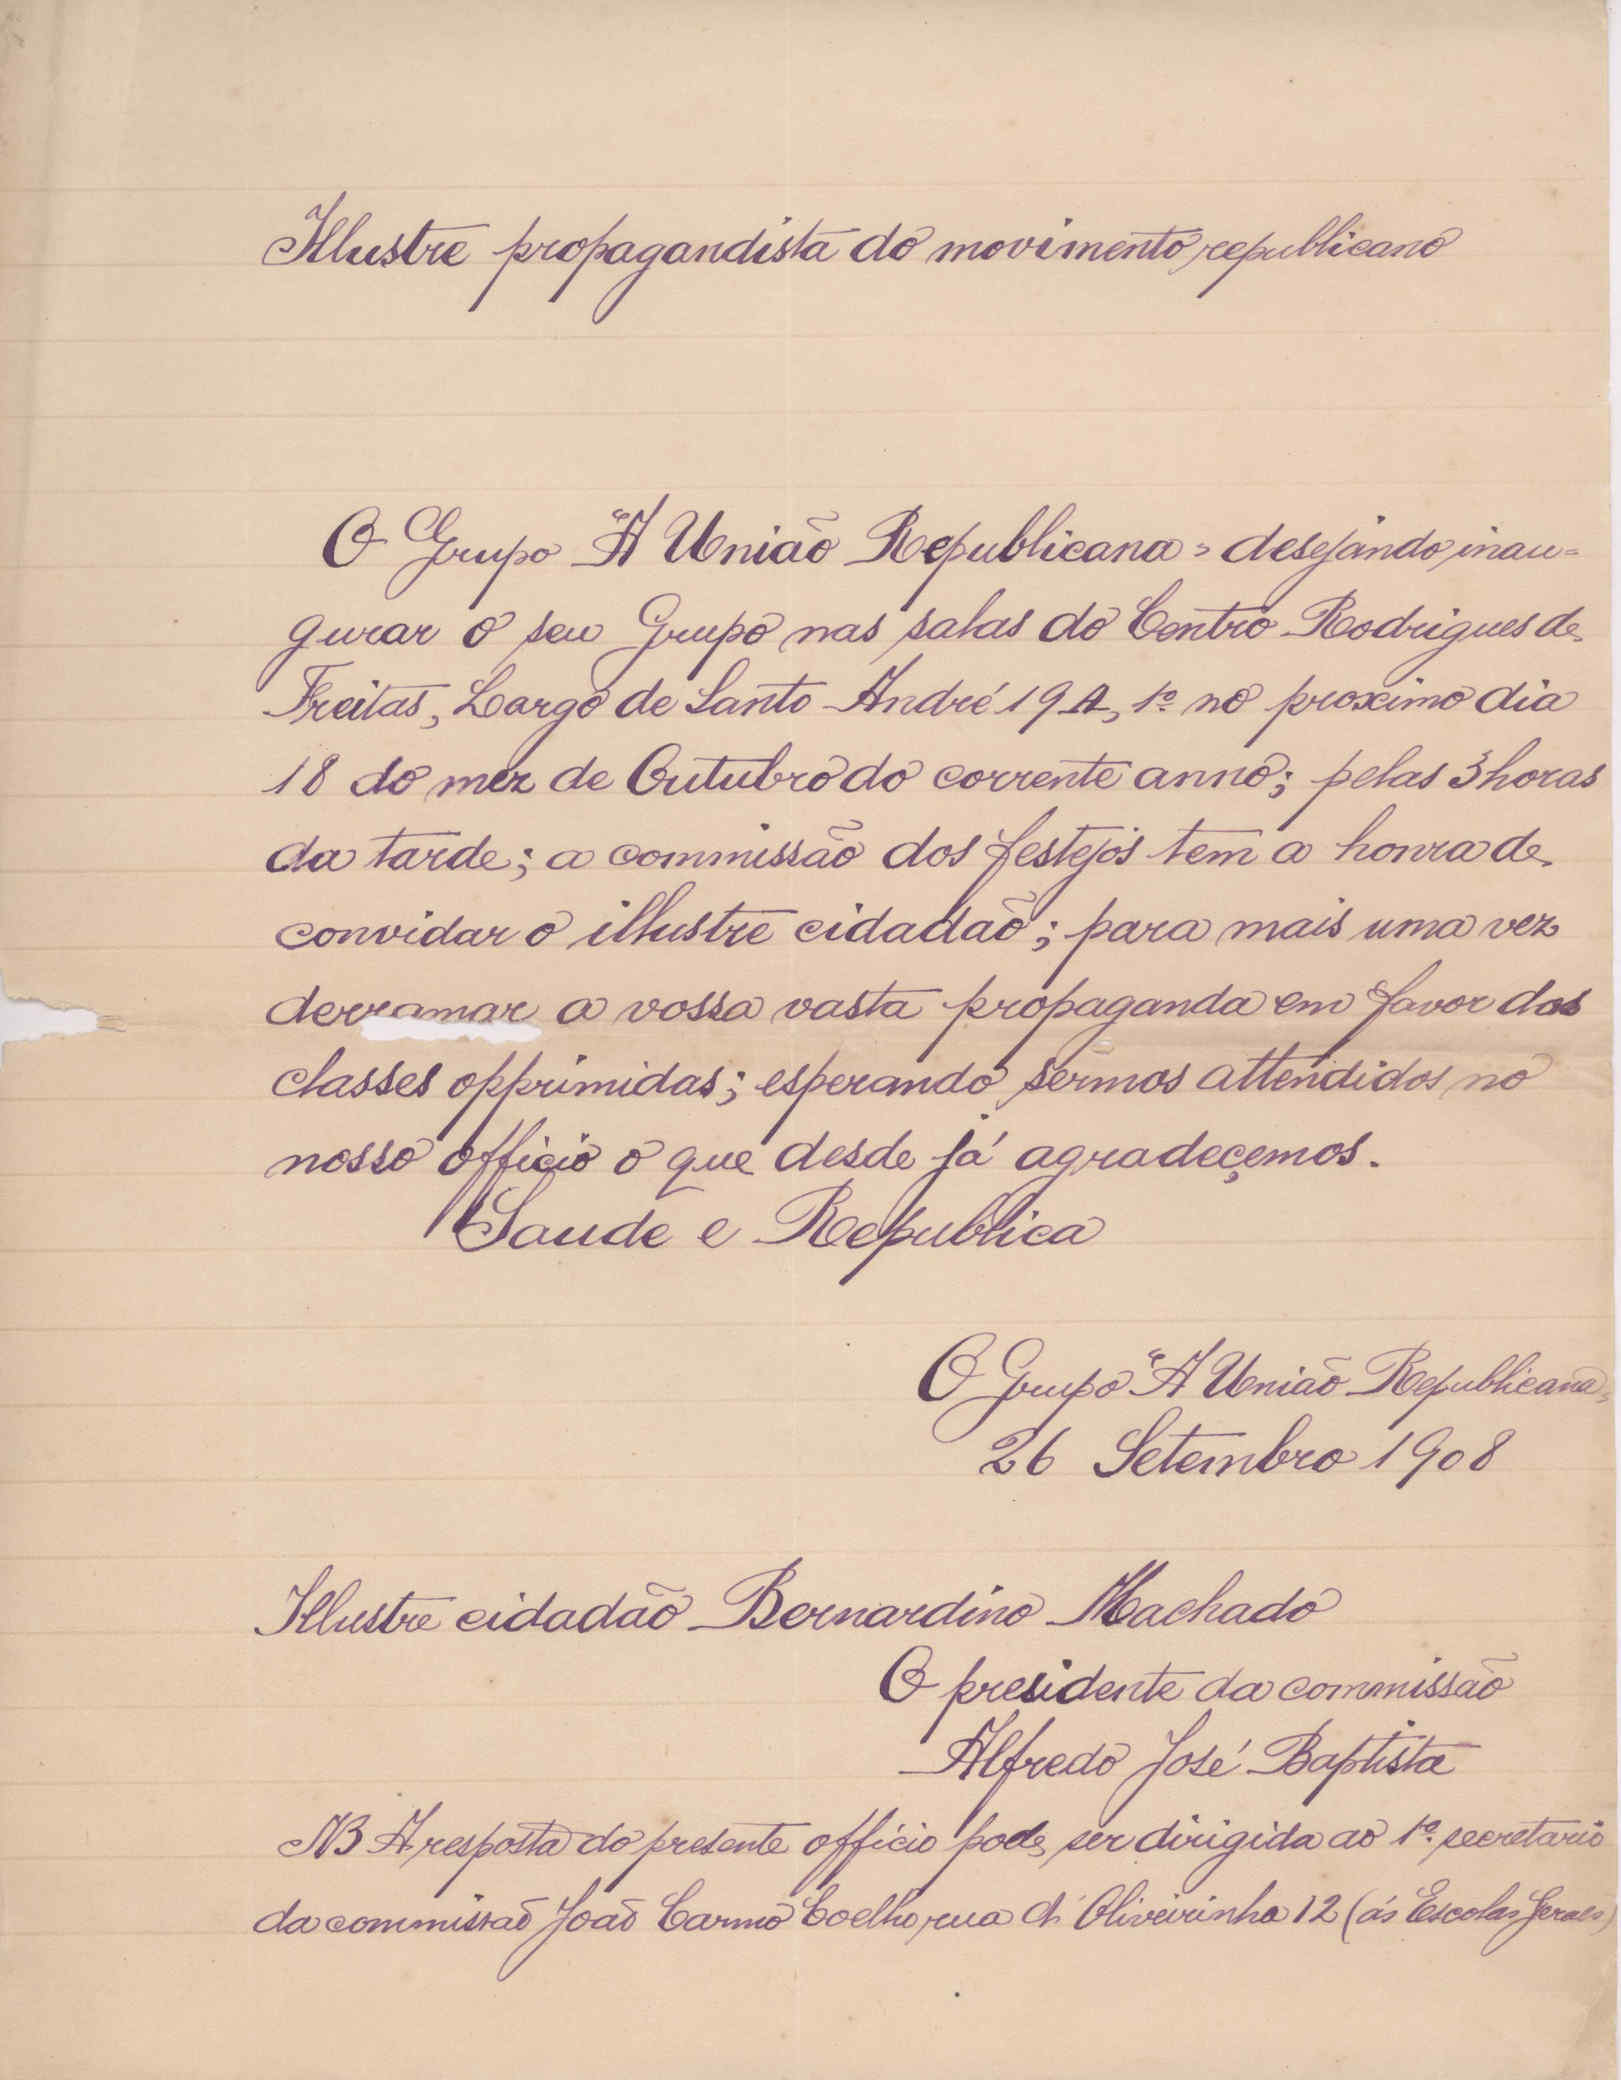 Illustre propagandista do movimento republicano
O Grupo "A União Republicana" desejando inau=
gurar o seu Grupo nas salas do Centro Rodrigues de
Freitas, Largo de Santo André 19 A, 1º no proximo dia
18 do mez de Outubro do corrente anno; pelas 3 horas
da tarde; a commissão dos festejos tem a honra de
convidar o illustre cidadão; para mais uma vez
derramar a vossa vasta propaganda em favor das
classes opprimidas; esperando sermos attendidos no
nosso officio o que desde já agradeçemos.
Saude e Republica
O Grupo "A União Republicana"
26 Setembro 1908
Illustre cidadão Bernardino Machado
O presidente da commissão
Alfredo José Baptista
NB A resposta do presente officio pode ser dirigida ao 1º secretario
da commissão João Carmo Coelho, rua d'Oliveirinha 12 (ás Escolas Geraes)